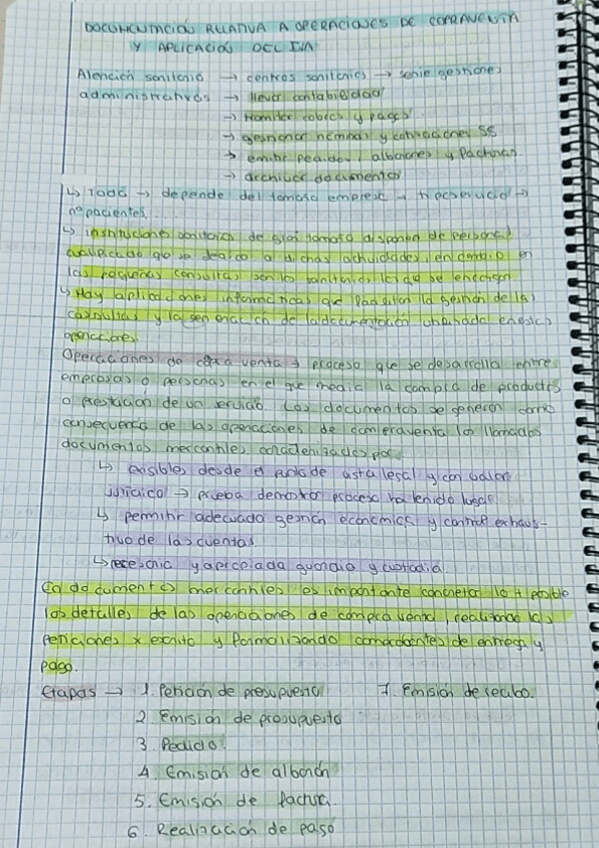 DOCUMENTACIÓN RELATIVA A OPERACIONES DE COMPRAVENTA
Y APLICACIÓN DEL IVA
Atención sanitaria → centros sanitarios → serie gestiones
administrativas → llevar contabilidad
→ tramitar cobros y pagos
→ gestionar nóminas y cotizaciones SS
→ emitir pedidos, albaranes y facturas
→ archivar documentos
↳ todo → depende del tamaño empresa →
nº pacientes...
↳ instituciones sanitarias de gran tamaño disponen de personal
cualificado que se dedica a dichas actividades, en cambio en
las pequeñas consultas son los sanitarios los que se encargan
↳ Hay aplicaciones informáticas que facilitan la gestión de las
consultas y la generación de la documentación
operaciones.
Operaciones de compra venta → proceso que se desarrolla entre
empresas o personas en el que media la compra de productos
o prestación de un servicio. Los documentos se generan como
consecuencia de las operaciones de compraventa los llamados
documentos mercantiles caracterizados por:
↳ exigibles desde el punto de vista legal y con valor
jurídico → prueba demostrar proceso ha tenido lugar
↳ permitir adecuada gestión económica y control exhaus-
tivo de las cuentas
↳ necesaria y apropiada guardia y custodia.
En documentos mercantiles es importante concretar lo + posible
los detalles de las operaciones de compra venta, realizando las
peticiones x escrito y formalizando comprobantes de entrega y
pago.
Etapas → 1. Petición de presupuesto 7. Emisión de recibo.
2. Emisión de presupuesto
3. Pedido.
4. Emisión de albarán
5. Emisión de factura.
6. Realización de pago